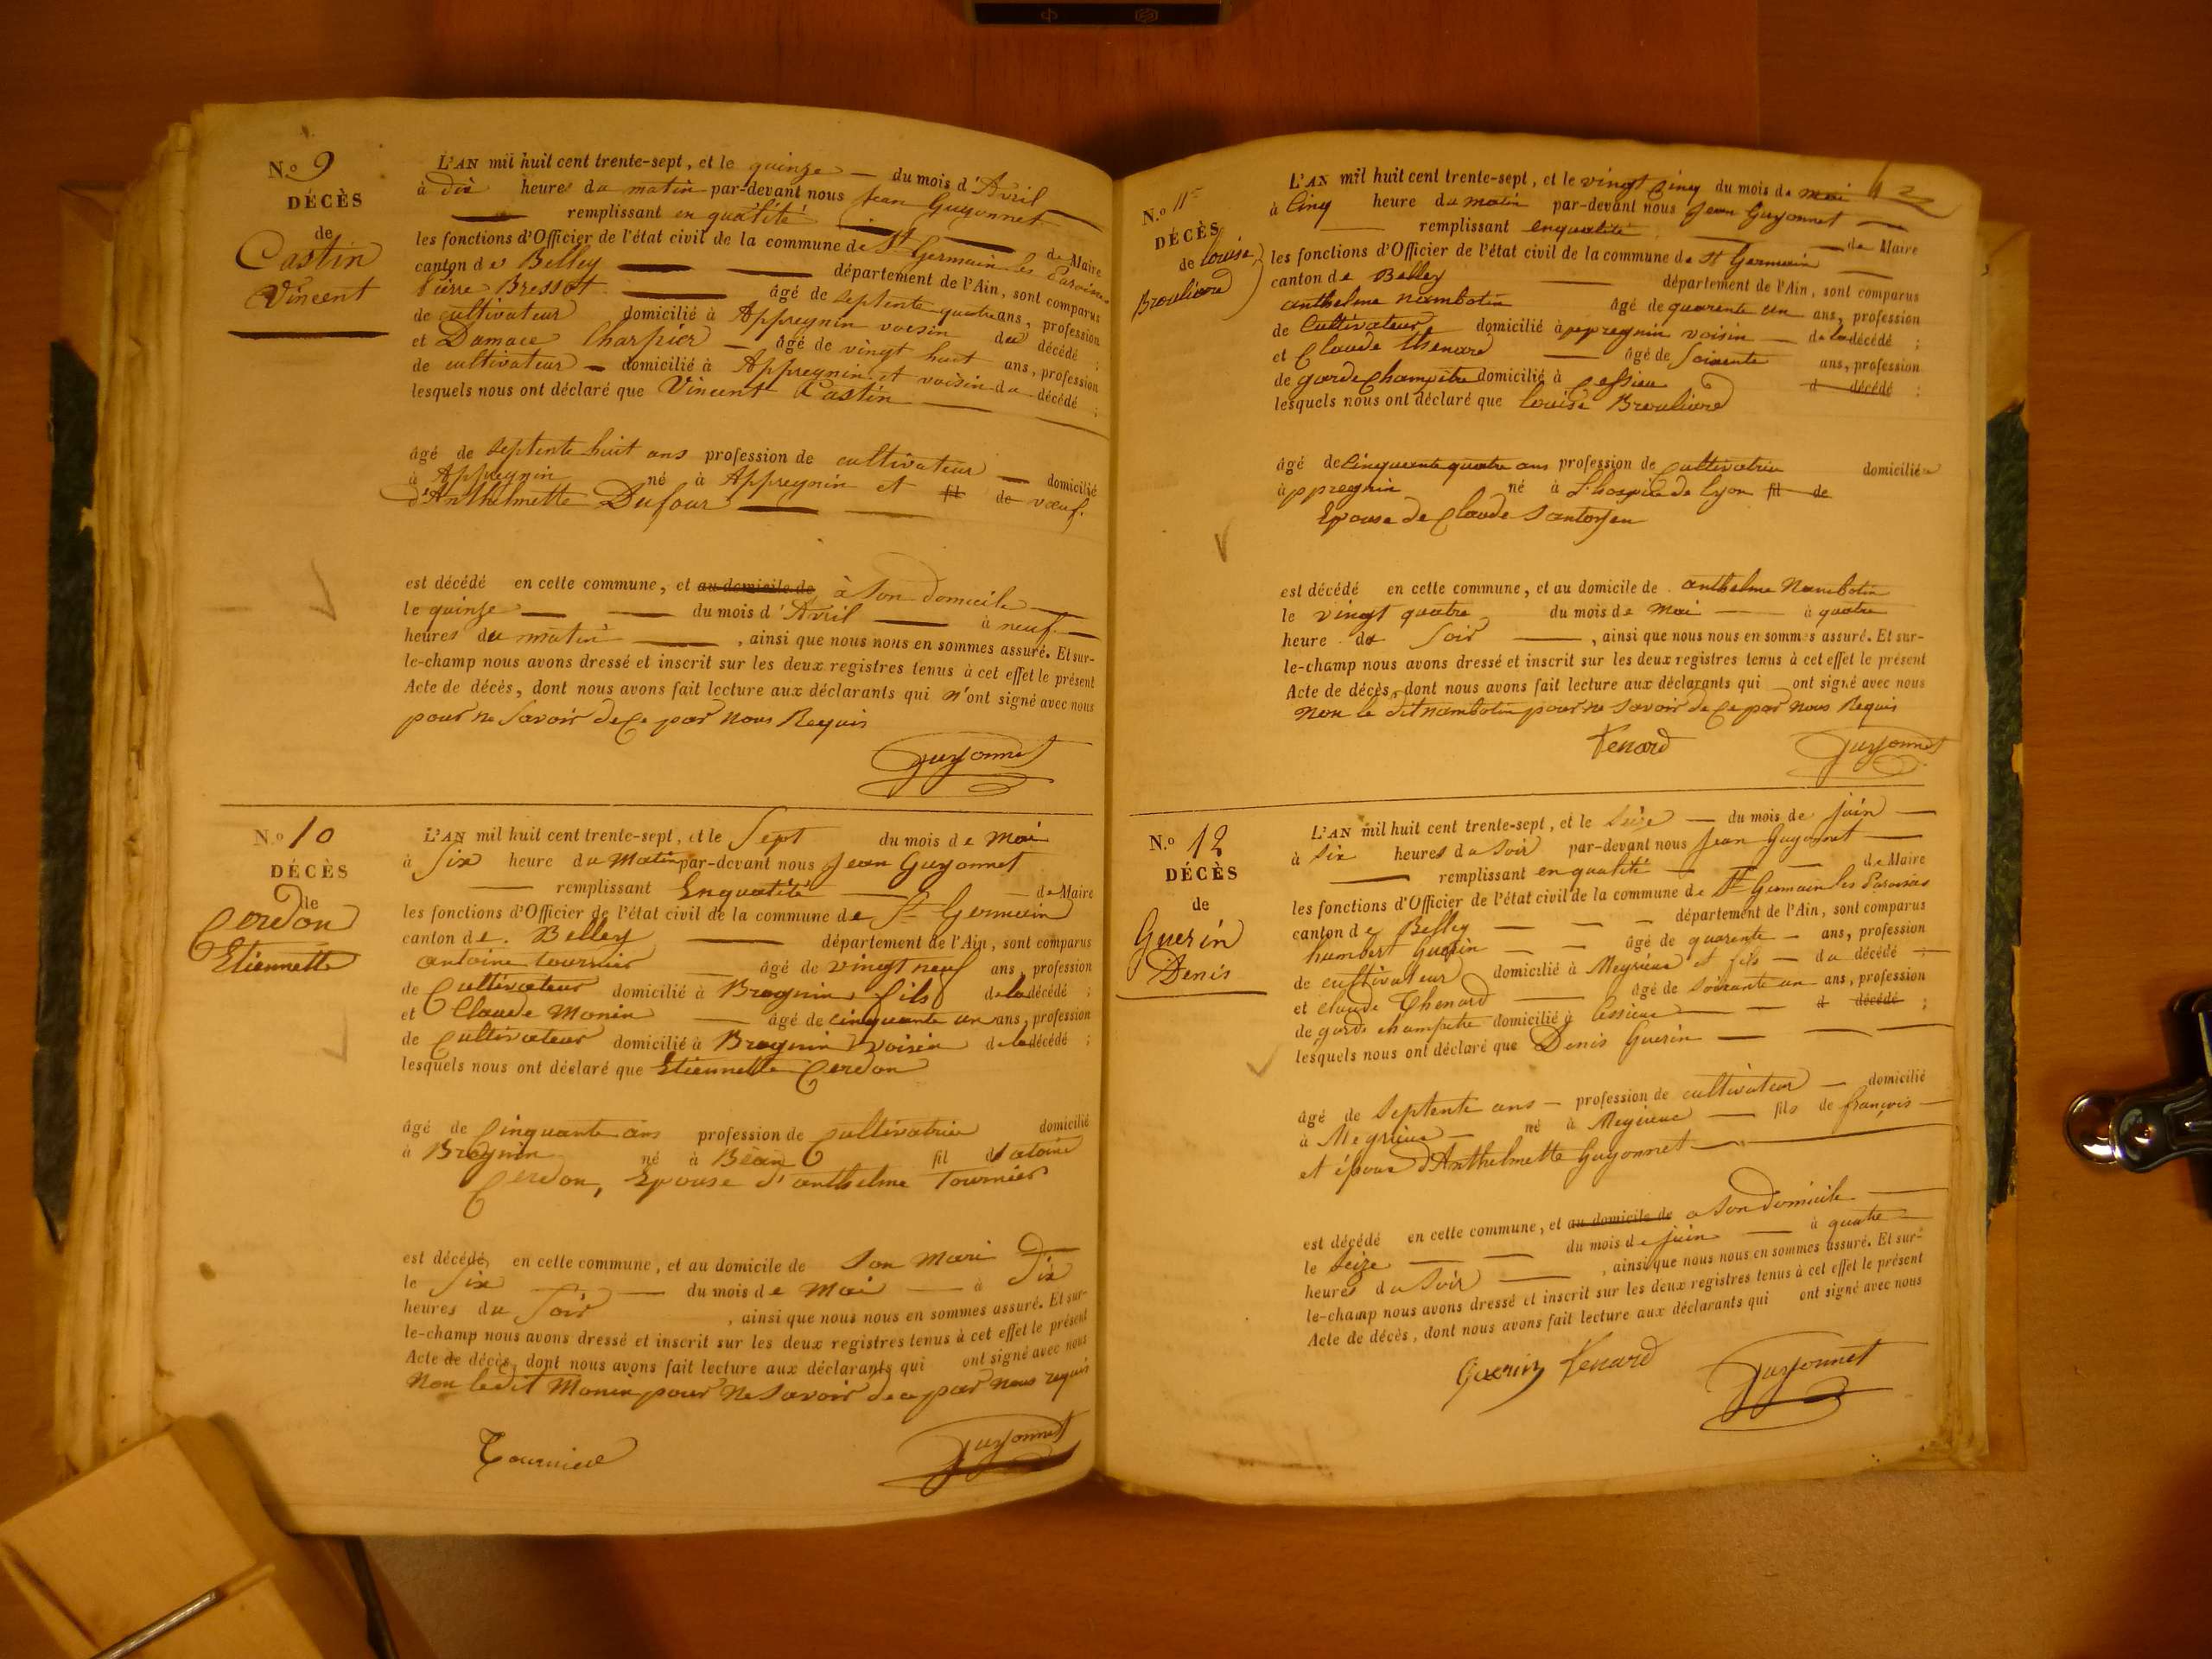 N.o 9
DÉCÈS
de
Castin
Vincent
L'AN mil huit cent trente-sept, et le quinze du mois d'Avril
à dix heures du matin par-devant nous Jean Guyonnet
remplissant en qualité de Maire
les fonctions d'Officier de l'état civil de la commune de St Germain les Paroisses
canton de Belley département de l'Ain, sont comparus
Pierre Bressot âgé de septente quatre ans, profession
de cultivateur domicilié à Appregnin voisin du décédé ;
et Damace Charpier âgé de vingt huit ans, profession
de cultivateur domicilié à Appregnin et voisin du décédé ;
lesquels nous ont déclaré que Vincent Castin
âgé de septente huit ans profession de cultivateur domicilié
à Appregnin né à Appregnin et fil de vœuf
d'Anthelmette Dufour
est décédé en cette commune, et au domicile de à Son domicile
le quinze du mois d'Avril à neuf
heures du matin , ainsi que nous nous en sommes assuré. Et sur-
le-champ nous avons dressé et inscrit sur les deux registres tenus à cet effet le présent
Acte de décès, dont nous avons fait lecture aux déclarants qui n'ont signé avec nous
pour ne Savoir de Ce par nous Requis
Guyonnet
N.o 10
DÉCÈS
de
Cerdon
Etiennette
L'AN mil huit cent trente-sept, et le Sept du mois de Mai
à Six heure du Matin par-devant nous Jean Guyonnet
remplissant Enqualité de Maire
les fonctions d'Officier de l'état civil de la commune de St Germain
canton de Belley département de l'Ain, sont comparus
antoine tournier âgé de vingt neuf ans, profession
de Cultivateur domicilié à Brognin fils de la décédé ;
et Claude Monin âgé de cinquante un ans, profession
de Cultivateur domicilié à Brognin voisin de la décédé ;
lesquels nous ont déclaré que Etiennette Cerdon
âgé de Cinquante ans profession de Cultivatrice domicilié
à Brognin né à Béon fil d'atoine
Cerdon, Epouse d'anthelme Tournier
est décédé, en cette commune, et au domicile de Son Mari
le Six du mois de Mai à Dix
heures du Soir , ainsi que nous nous en sommes assuré. Et sur-
le-champ nous avons dressé et inscrit sur les deux registres tenus à cet effet le présent
Acte de décès, dont nous avons fait lecture aux déclarants qui ont signé avec nous
Non ledit Monin pour Ne Savoir de ce par nous requis
Tournier
Guyonnet
N.o 11
DÉCÈS
de Louise
Brouliard
L'AN mil huit cent trente-sept, et le vingt Cinq du mois de mai
à Cinq heure du matin par-devant nous Jean Guyonnet
remplissant enqualité de Maire
les fonctions d'Officier de l'état civil de la commune de St Germain
canton de Belley département de l'Ain, sont comparus
anthelme Nambotin âgé de quarente un ans, profession
de Cultivateur domicilié à appregnin voisin de la décédé ;
et Claude thenard âgé de Soixente ans, profession
de garde Champêtre domicilié à Cessieu d décédé ;
lesquels nous ont déclaré que Louise Brouliard
âgé de Cinquante quatre ans profession de Cultivatrice domicilié
à ppregnin né à L'hospice de Lyon fil de
Epouse de Claude Santoyen
est décédé en cette commune, et au domicile de anthelme Nambotin
le vingt quatre du mois de Mai à quatre
heure du Soir , ainsi que nous nous en sommes assuré. Et sur-
le-champ nous avons dressé et inscrit sur les deux registres tenus à cet effet le présent
Acte de décès, dont nous avons fait lecture aux déclarants qui ont signé avec nous
Non le dit nambotin pour ne Savoir de Ce par nous Requis
tenard
Guyonnet
N.o 12
DÉCÈS
de
Guerin
Denis
L'AN mil huit cent trente-sept, et le Seize du mois de juin
à six heures du Soir par-devant nous Jean Guyonnet
remplissant en qualité de Maire
les fonctions d'Officier de l'état civil de la commune de St Germain les Paroisses
canton de Belley département de l'Ain, sont comparus
humbert Guerin âgé de quarente ans, profession
de cultivateur domicilié à Meyrieux et fils du décédé ;
et claude Thenard âgé de soixante un ans, profession
de garde champetre domicilié à Cessieux d décédé ;
lesquels nous ont déclaré que Denis Guerin
âgé de septente ans profession de cultivateur domicilié
à Meyrieux né à Meyrieux fils de françois
et époux d'Anthelmette Guyonnet
est décédé en cette commune, et au domicile de a Son domicile
le Seize du mois de juin à quatre
heures du Soir , ainsi que nous nous en sommes assuré. Et sur-
le-champ nous avons dressé et inscrit sur les deux registres tenus à cet effet le présent
Acte de décès, dont nous avons fait lecture aux déclarants qui ont signé avec nous
Guerin tenard Guyonnet